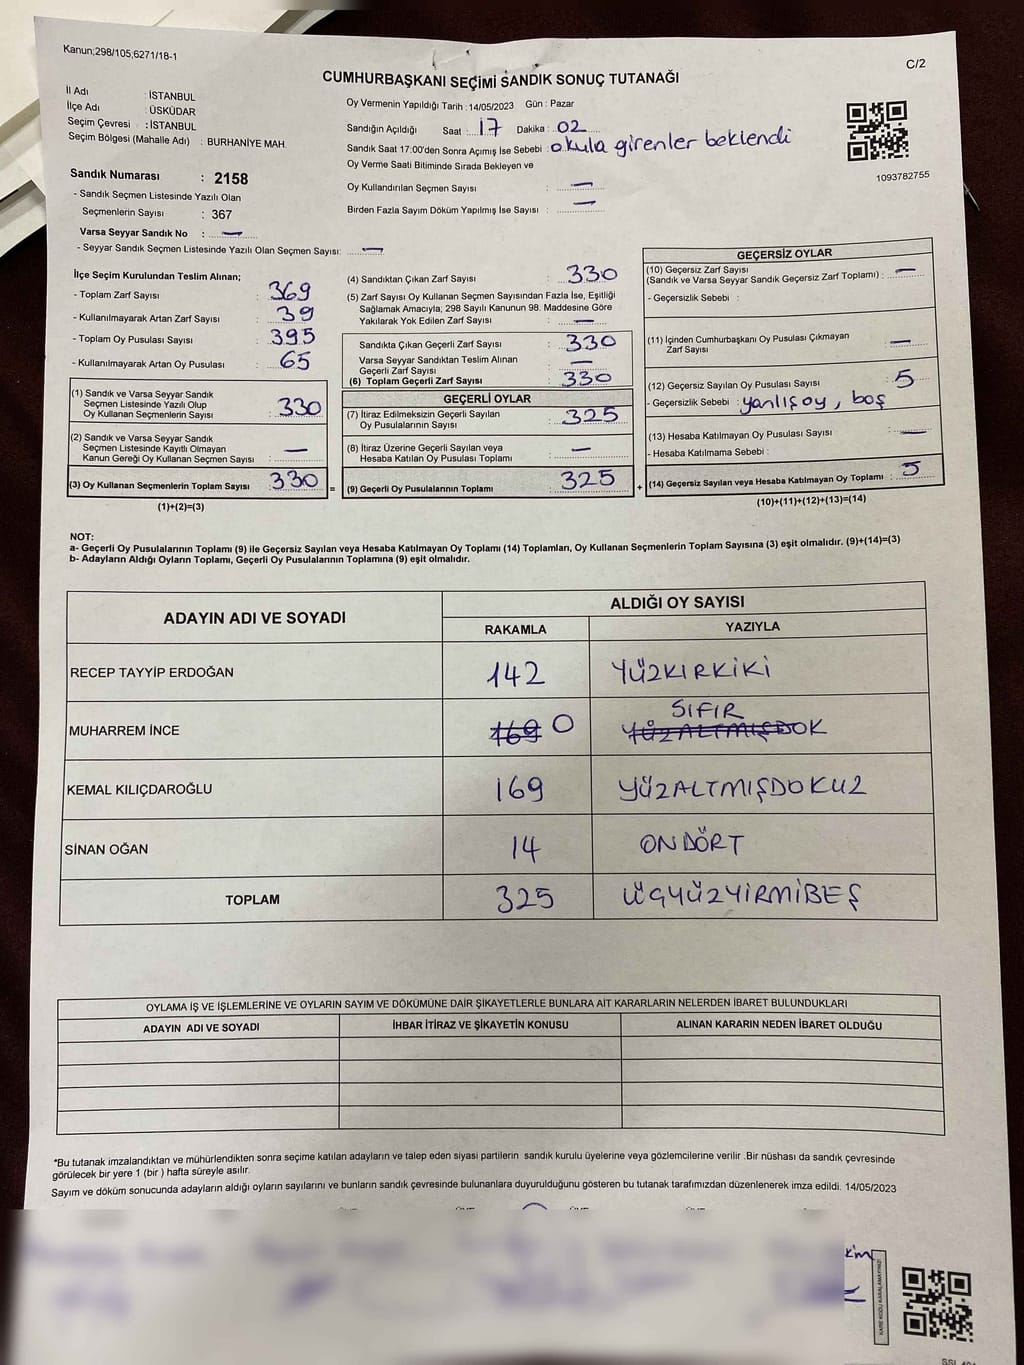 Kanun;298/105;6271/18-1
C/2
CUMHURBAŞKANI SEÇİMİ SANDIK SONUÇ TUTANAĞI
İl Adı : İSTANBUL
İlçe Adı : ÜSKÜDAR
Seçim Çevresi : İSTANBUL
Seçim Bölgesi (Mahalle Adı) : BURHANİYE MAH.
Sandık Numarası : 2158
- Sandık Seçmen Listesinde Yazılı Olan
Seçmenlerin Sayısı : 367
Varsa Seyyar Sandık No : —
- Seyyar Sandık Seçmen Listesinde Yazılı Olan Seçmen Sayısı: —
Oy Vermenin Yapıldığı Tarih : 14/05/2023 Gün : Pazar
Sandığın Açıldığı Saat : 17 Dakika : 02
Sandık Saat 17:00'den Sonra Açımış İse Sebebi : okula girenler beklendi
Oy Verme Saati Bitiminde Sırada Bekleyen ve
Oy Kullandırılan Seçmen Sayısı : —
Birden Fazla Sayım Döküm Yapılmış İse Sayısı : —
1093782755
İlçe Seçim Kurulundan Teslim Alınan;
- Toplam Zarf Sayısı : 369
- Kullanılmayarak Artan Zarf Sayısı : 39
- Toplam Oy Pusulası Sayısı : 395
- Kullanılmayarak Artan Oy Pusulası : 65
(1) Sandık ve Varsa Seyyar Sandık
Seçmen Listesinde Yazılı Olup
Oy Kullanan Seçmenlerin Sayısı : 330
(2) Sandık ve Varsa Seyyar Sandık
Seçmen Listesinde Kayıtlı Olmayan
Kanun Gereği Oy Kullanan Seçmen Sayısı : —
(3) Oy Kullanan Seçmenlerin Toplam Sayısı : 330 =
(1)+(2)=(3)
(4) Sandıktan Çıkan Zarf Sayısı : 330
(5) Zarf Sayısı Oy Kullanan Seçmen Sayısından Fazla İse, Eşitliği
Sağlamak Amacıyla; 298 Sayılı Kanunun 98. Maddesine Göre
Yakılarak Yok Edilen Zarf Sayısı : —
Sandıkta Çıkan Geçerli Zarf Sayısı : 330
Varsa Seyyar Sandıktan Teslim Alınan
Geçerli Zarf Sayısı : —
(6) Toplam Geçerli Zarf Sayısı : 330
GEÇERLİ OYLAR
(7) İtiraz Edilmeksizin Geçerli Sayılan
Oy Pusulalarının Sayısı : 325
(8) İtiraz Üzerine Geçerli Sayılan veya
Hesaba Katılan Oy Pusulası Toplamı : —
(9) Geçerli Oy Pusulalarının Toplamı : 325 +
GEÇERSİZ OYLAR
(10) Geçersiz Zarf Sayısı
(Sandık ve Varsa Seyyar Sandık Geçersiz Zarf Toplamı) : —
- Geçersizlik Sebebi :
(11) İçinden Cumhurbaşkanı Oy Pusulası Çıkmayan
Zarf Sayısı : —
(12) Geçersiz Sayılan Oy Pusulası Sayısı : 5
- Geçersizlik Sebebi : yanlış oy, boş
(13) Hesaba Katılmayan Oy Pusulası Sayısı : —
- Hesaba Katılmama Sebebi :
(14) Geçersiz Sayılan veya Hesaba Katılmayan Oy Toplamı : 5
(10)+(11)+(12)+(13)=(14)
NOT:
a- Geçerli Oy Pusulalarının Toplamı (9) ile Geçersiz Sayılan veya Hesaba Katılmayan Oy Toplamı (14) Toplamları, Oy Kullanan Seçmenlerin Toplam Sayısına (3) eşit olmalıdır. (9)+(14)=(3)
b- Adayların Aldığı Oyların Toplamı, Geçerli Oy Pusulalarının Toplamına (9) eşit olmalıdır.
ADAYIN ADI VE SOYADI ALDIĞI OY SAYISI
RAKAMLA YAZIYLA
RECEP TAYYİP ERDOĞAN 142 YÜZKIRKİKİ
MUHARREM İNCE 169 0 SIFIR YÜZALTMIŞDOK
KEMAL KILIÇDAROĞLU 169 YÜZALTMIŞDOKUZ
SİNAN OĞAN 14 ONDÖRT
TOPLAM 325 ÜÇYÜZYİRMİBEŞ
OYLAMA İŞ VE İŞLEMLERİNE VE OYLARIN SAYIM VE DÖKÜMÜNE DAİR ŞİKAYETLERLE BUNLARA AİT KARARLARIN NELERDEN İBARET BULUNDUKLARI
ADAYIN ADI VE SOYADI İHBAR İTİRAZ VE ŞİKAYETİN KONUSU ALINAN KARARIN NEDEN İBARET OLDUĞU
*Bu tutanak imzalandıktan ve mühürlendikten sonra seçime katılan adayların ve talep eden siyasi partilerin sandık kurulu üyelerine veya gözlemcilerine verilir .Bir nüshası da sandık çevresinde
görülecek bir yere 1 (bir ) hafta süreyle asılır.
Sayım ve döküm sonucunda adayların aldığı oyların sayılarını ve bunların sandık çevresinde bulunanlara duyurulduğunu gösteren bu tutanak tarafımızdan düzenlenerek imza edildi. 14/05/2023
KARE KODU KARALAMAYINIZ!